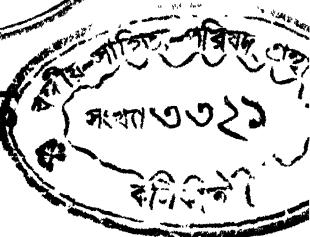 বঙ্গীয়-সাহিত্য-পরিষদ্ গ্রন্থ
সংখ্যা ৩৩২১